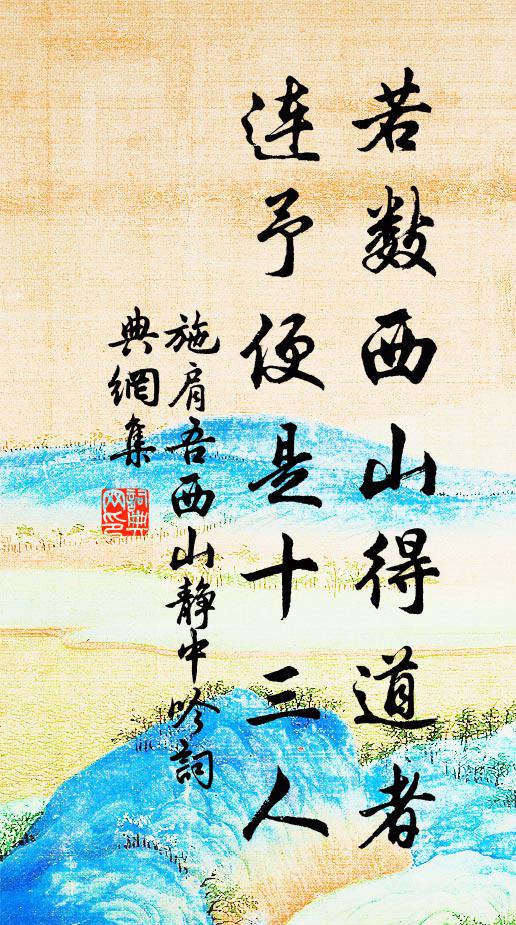 若数西山得道者
连予便是十三人
施肩吾西山静中吟词
典網集
詞典網印